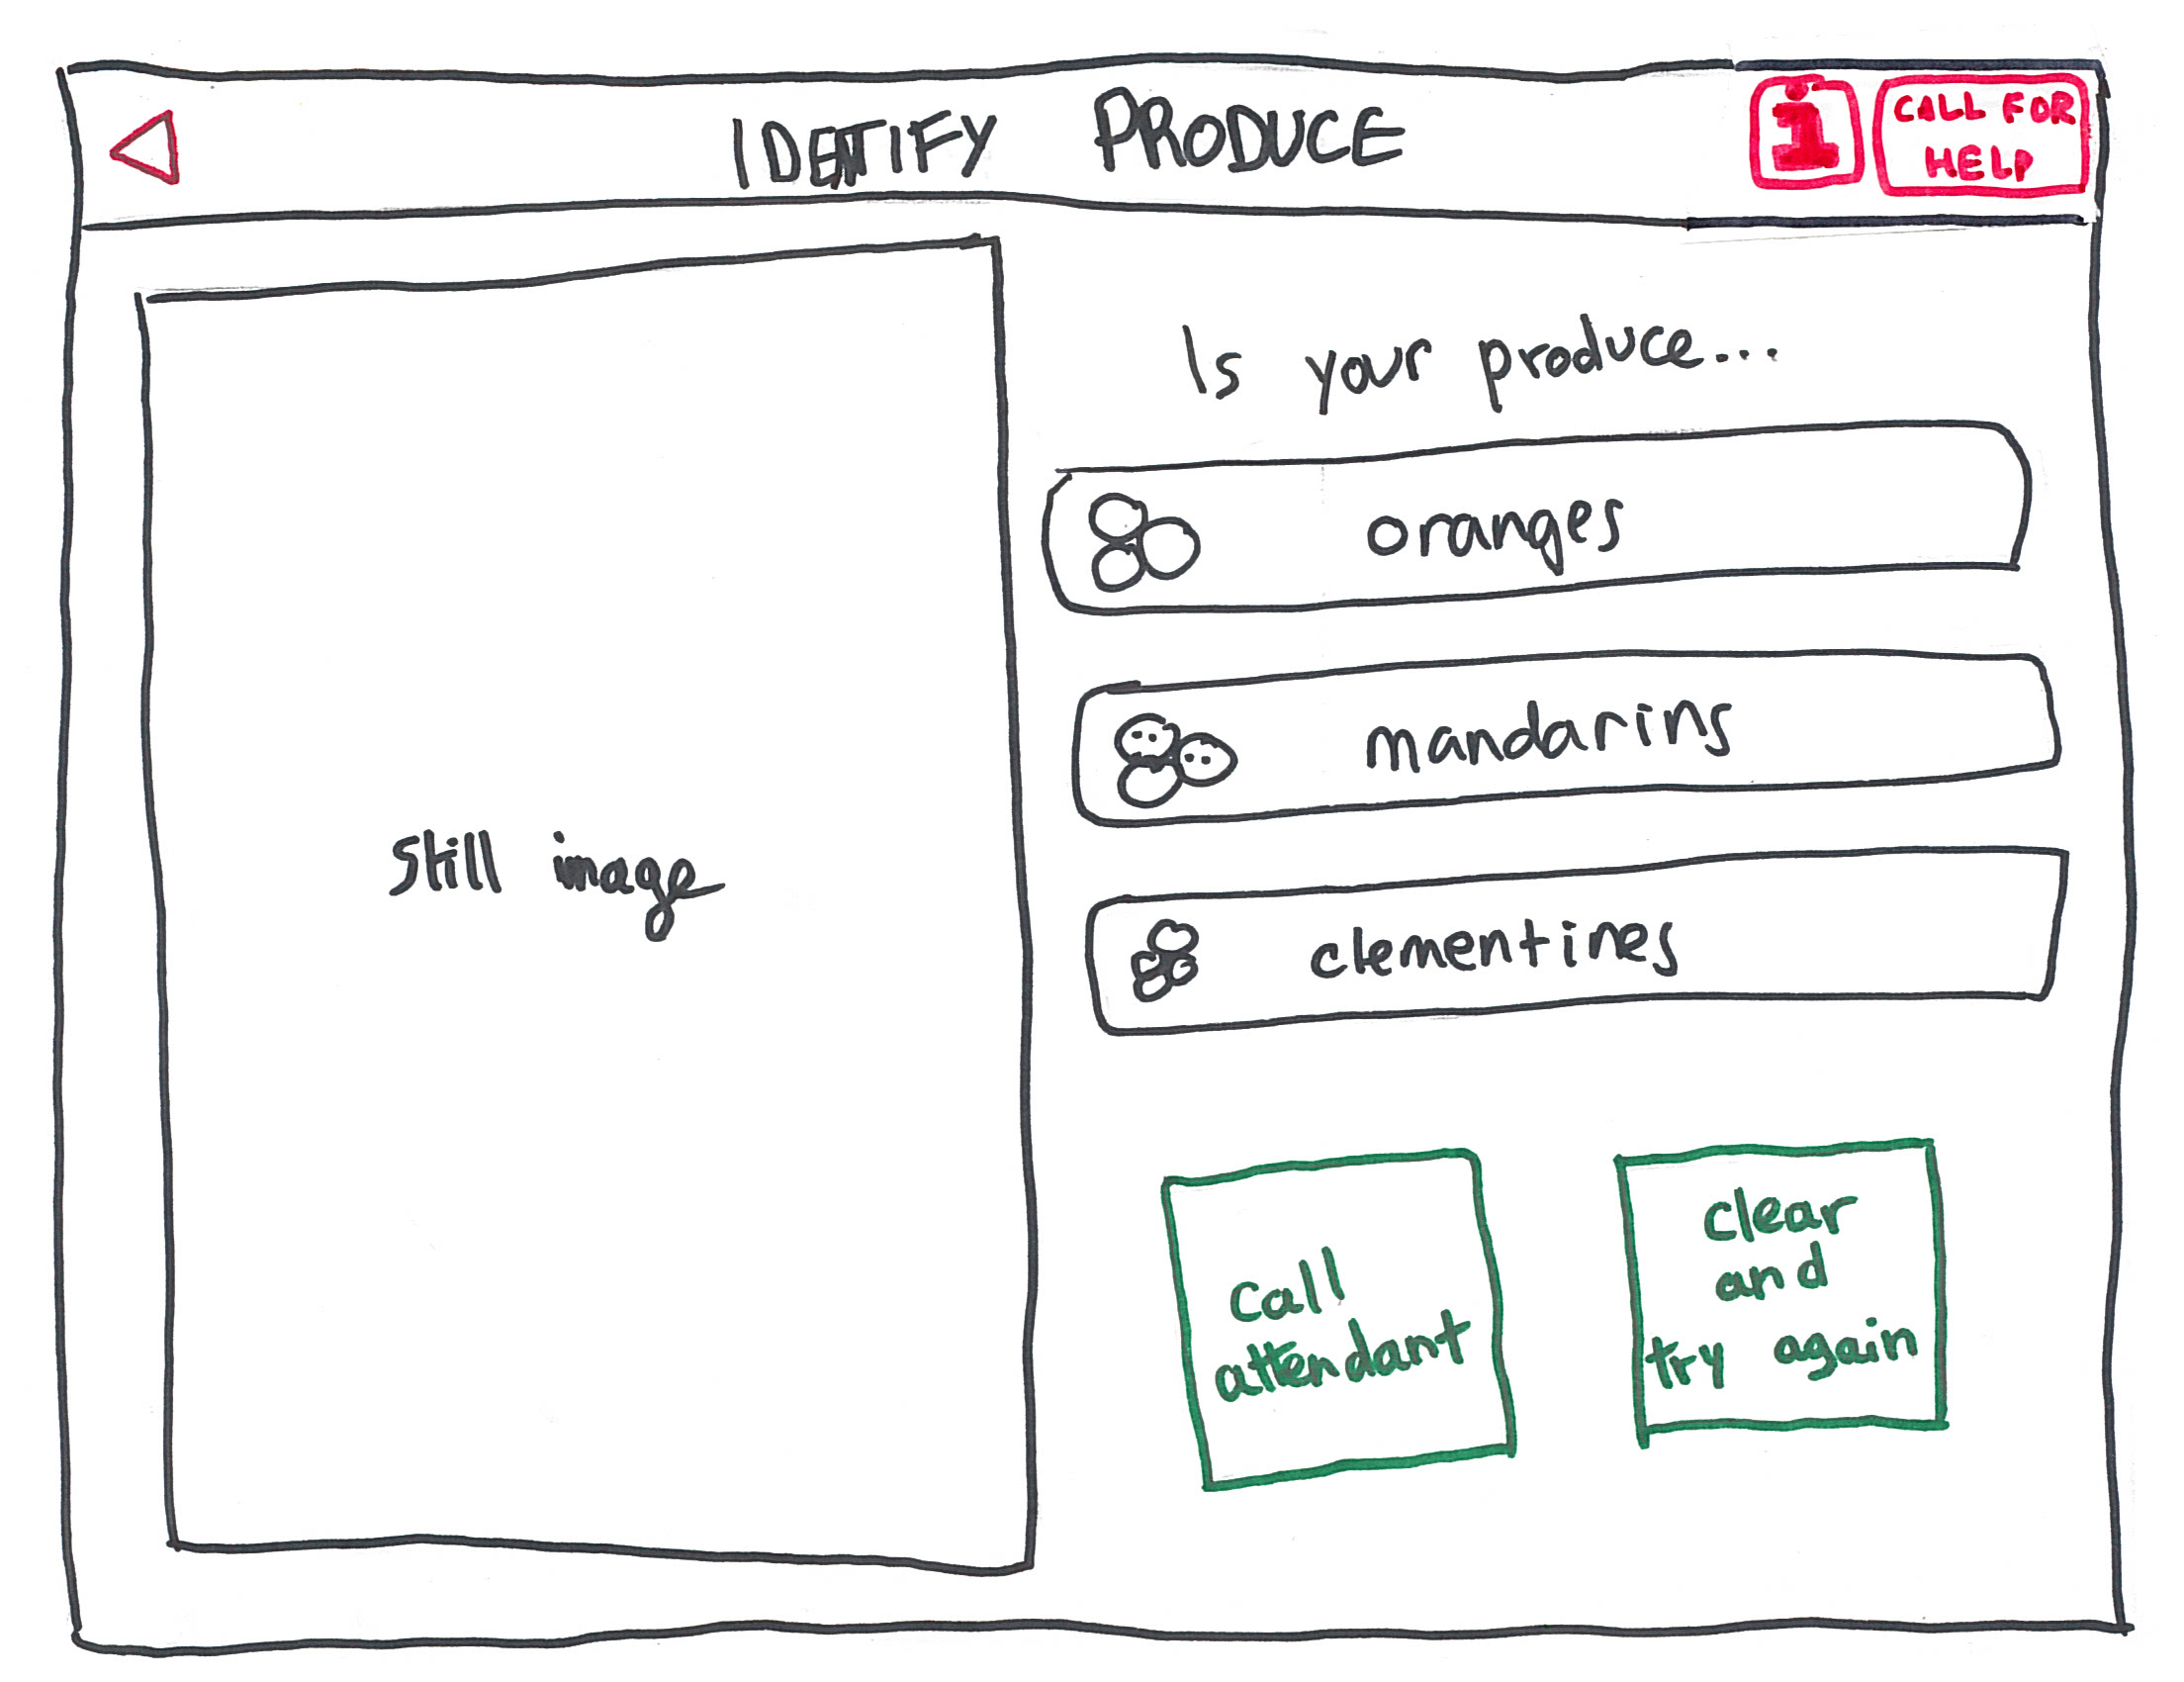 IDENTIFY PRODUCE
i
CALL FOR
HELP
Still image
Is your produce...
oranges
mandarins
clementines
call
attendant
clear
and
try again